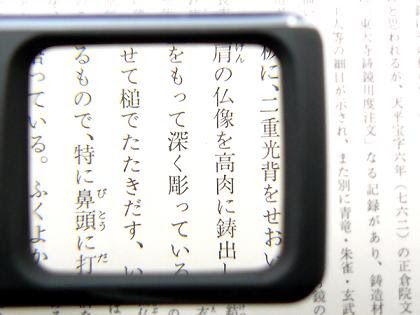 われるが、天平宝字六年（七六二）の正倉院文
東大寺鋳鏡用度注文」なる記録があり、鋳造材
人等の細目が示され、また別に青竜・朱雀・玄武
鏡の
に、二重光背をせおい
肩の仏像を高肉に鋳出し
をもって深く彫っている
せて槌でたたきだす、い
るもので、特に鼻頭に打
っている。ふくよか